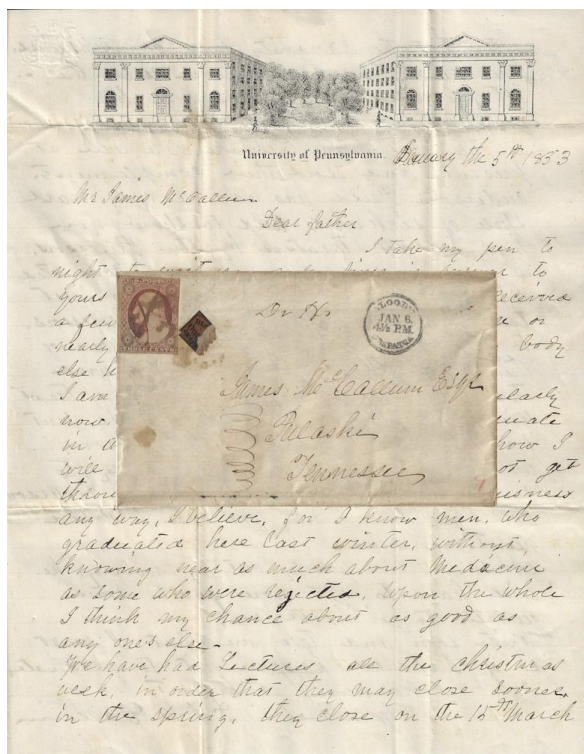 University of Pennsylvania. January the 5th 1853
Mr James McCallum
Dear father
I take my pen to
night to
to
yours
received
a few
or
nearly
body
else
I am
now
in
how I
will
not get
any way, I believe, for I know men, who
graduated here last winter, without,
knowing near as much about Medecine
as some who were rejected, upon the whole
I think my chance about as good as
any one's else-
We have had Lectures all the christmas
week, in order that they may close sooner
in the spring. they close on the 15th March
THREE CENTS
BLOOD'S
JAN 6.
4½ P.M.
DESPATCH
James McCallum Esqr
Pulaski
Tennessee